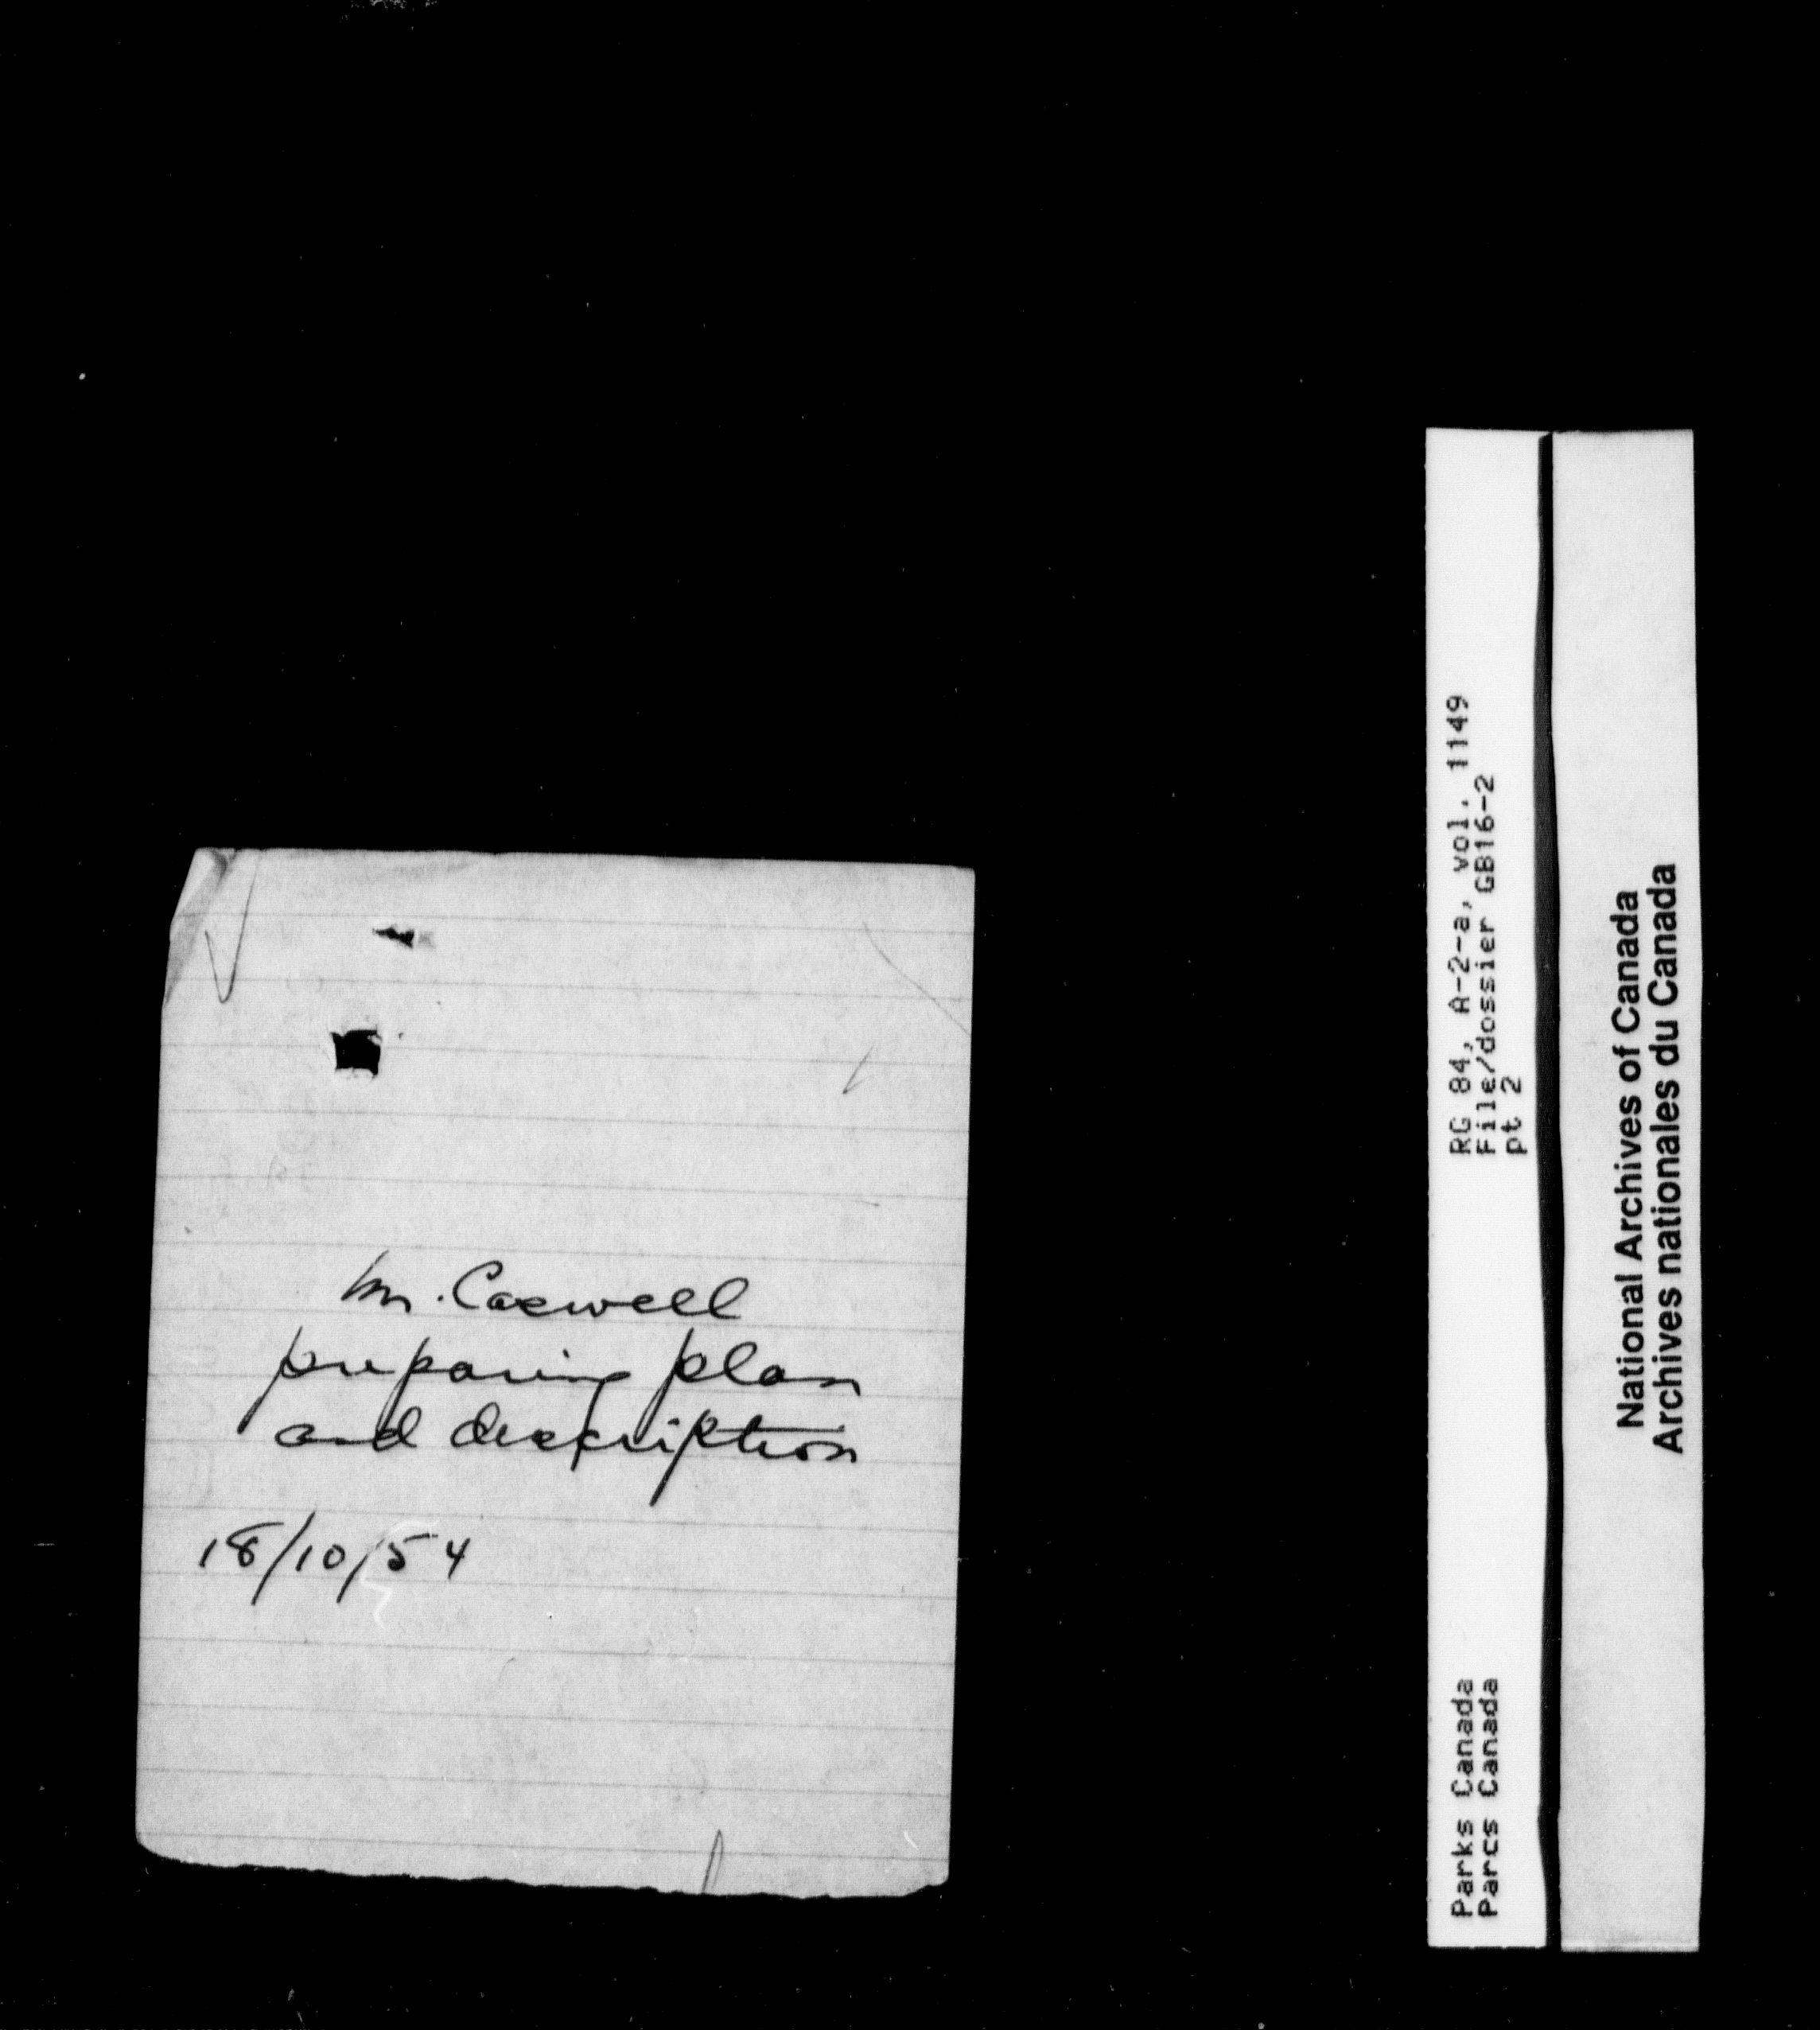 Mr. Caswell
preparing plan
and description
18/10/54
RG 84, A-2-a, vol. 1149
File/dossier GB16-2
pt 2
Parks Canada
Parcs Canada
National Archives of Canada
Archives nationales du Canada